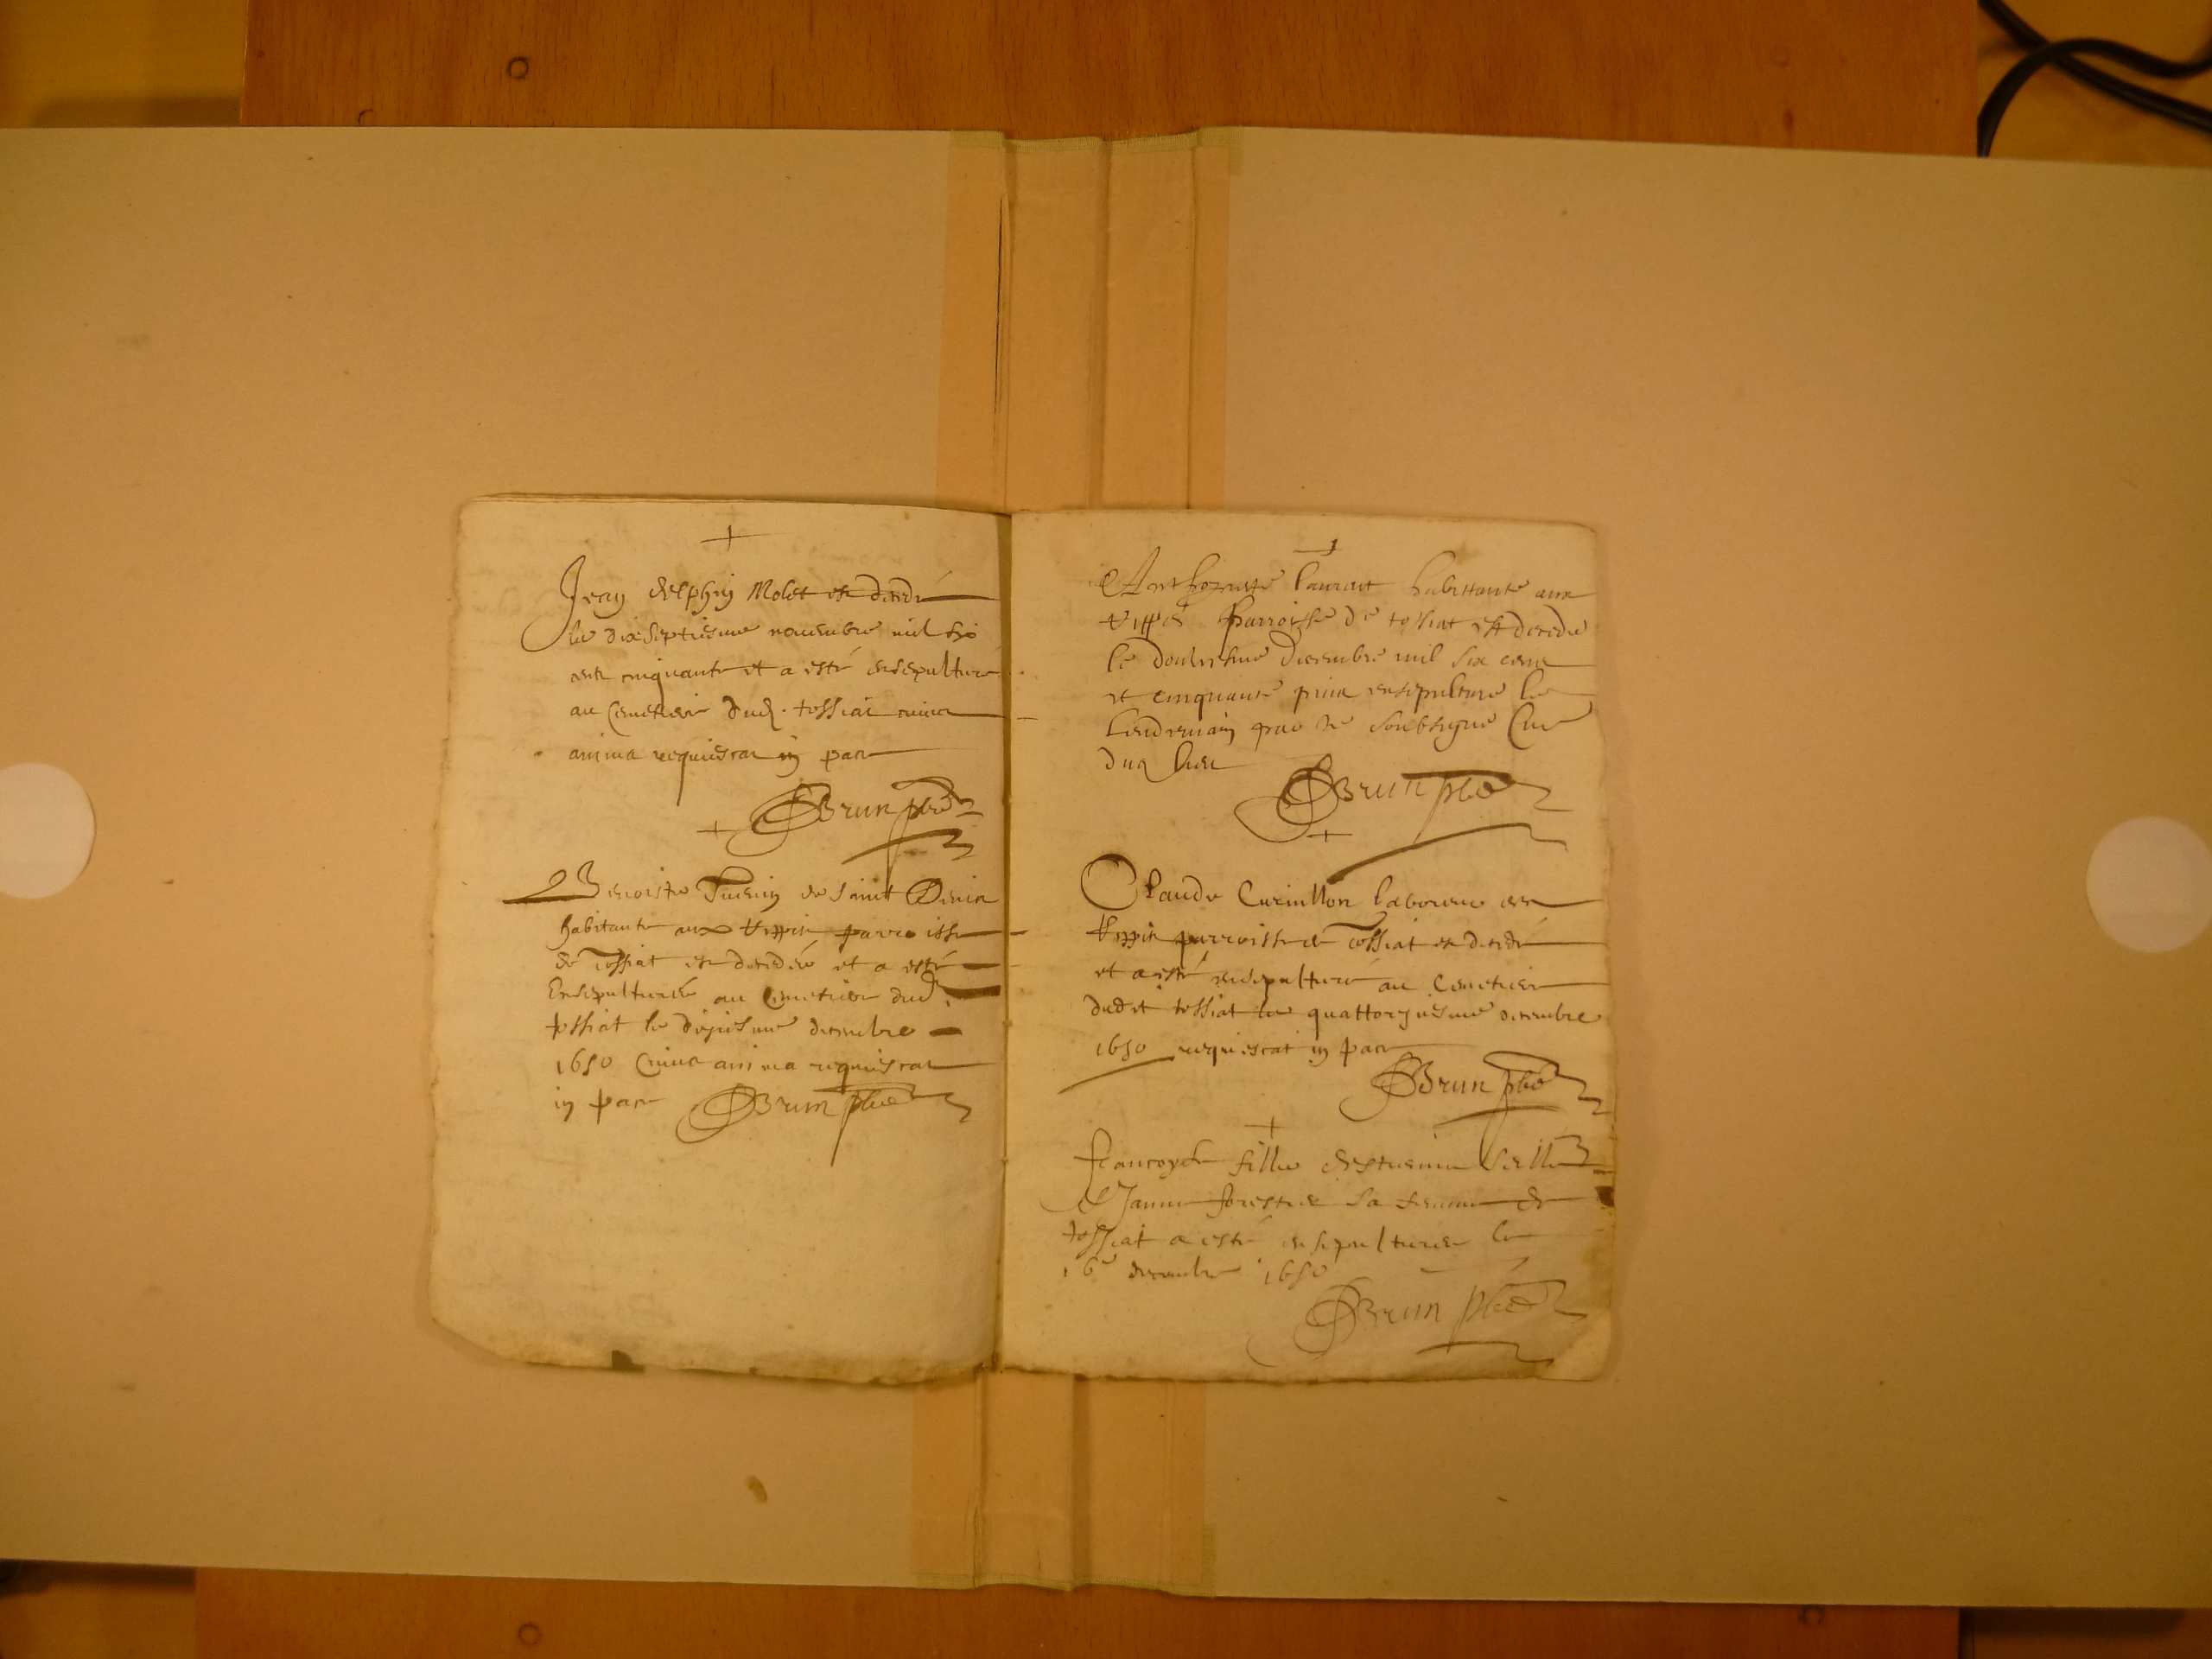 Jean delphin Molet est decedé
le dixseptiesme nouembre mil six
cent cinquante et a esté ensepulturé
au Cemetier dud. tossiat cuius
anima requiescat in pace
Brun pbre
Benoiste de Saint Denis
habitante aux Teppes parroisse
de Tossiat est decedée et a esté
Ensepulturée au Cemetier dud.
tossiat le decembre
1650 Cuius anima requiescat
in pace Brun pbre
laurent habittante aux
teppes parroisse de tossiat est decedée
le decembre mil six cens
et cinquante ensepulturé le
lendemain par me soubsigné Curé
dud lieu
Brun pbre
Claude Curnillon laboureur des
teppes parroisse de Tossiat est decedé
et a esté ensepulturé au Cemetier
dudit tossiat le quattorziesme decembre
1650 requiescat in pace
Brun pbre
francoyse fille
forestier sa femme de
tossiat a esté ensepulturée le
16e decembre 1650
Brun pbre